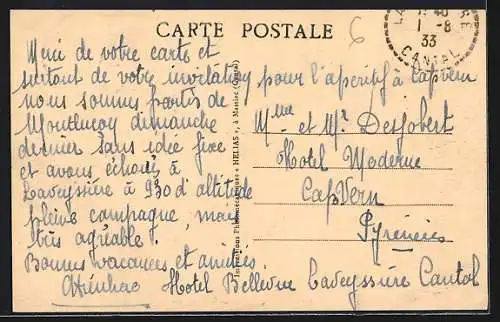 CARTE POSTALE
6
1-8
33
CANTAL
Merci de votre carte et
surtout de votre invitation pour l'aperitif à Capvern
nous sommes partis de
Montluçon dimanche
dernier sans idée fixe
et avons échoué à
Laveyssière à 930 d'altitude
pleine campagne, mais
très agréable.
Bonnes vacances et amitiés
Hotel Bellevue Laveyssière Cantal
Mme et Mr Desjobert
Hotel Moderne
CapVern
Pyrénées
"HELIAS", à Massiac (Cantal)